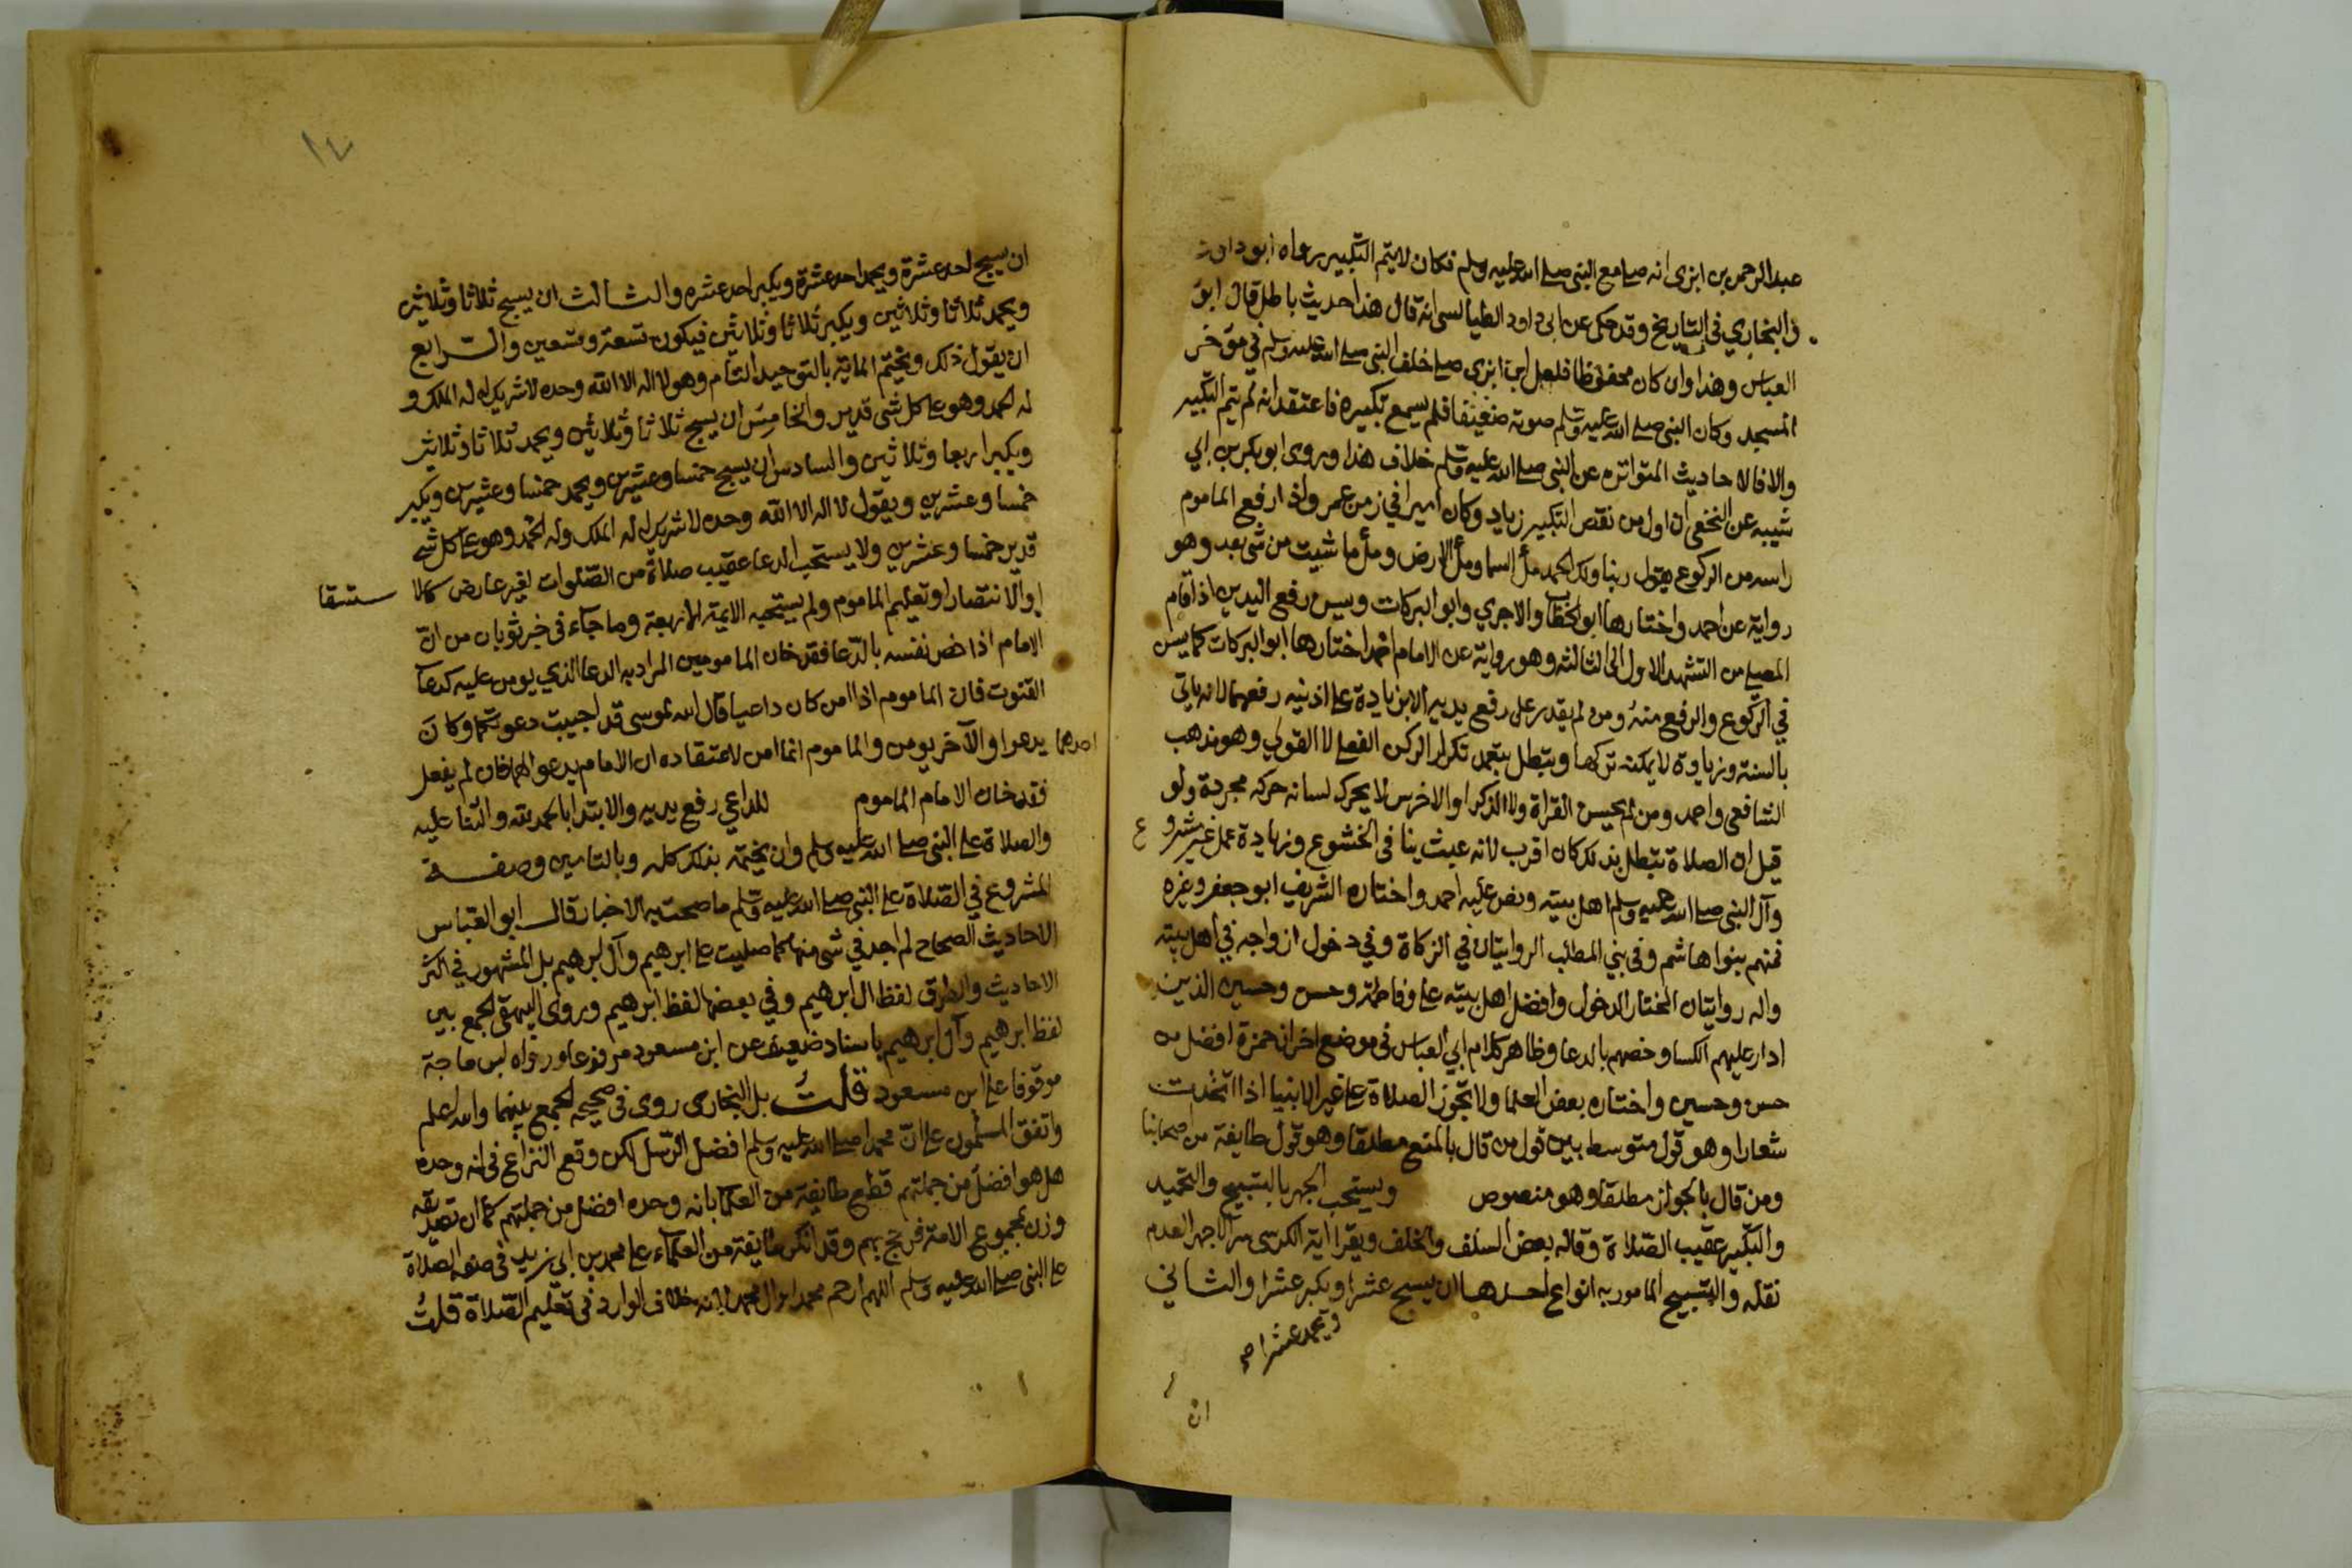 عبد الرحمن بن ابزى انه صلى مع النبي صلى الله عليه وسلم فكان لا يتم التكبير رواه ابو داود
والبخاري في التاريخ وقد حكى عن ابي داود الطيالسي انه قال هذا حديث باطل قال ابو
العباس وهذا وان كان محفوظا فلعل ابن ابزى صلى خلف النبي صلى الله عليه وسلم في موخر
المسجد وكان النبي صلى الله عليه وسلم صوته ضعيفا فلم يسمع تكبيره فاعتقد انه لم يتم التكبير
والا فالاحاديث المتواتره عن النبي صلى الله عليه وسلم خلاف هذا وروى ابو بكر بن ابي
شيبه عن النخعي ان اول من نقص التكبير زياد وكان اميرا في زمن عمر واذا رفع الماموم
راسه من الركوع يقول ربنا ولك الحمد ملأ السما وملأ الارض وملأ ما شيت من شي بعد وهو
رواية عن احمد واختارها ابو الخطاب والاجري وابو البركات ويسن رفع اليدين اذا قام
المصلي من التشهد الاول الى الثالثه وهو رواية عن الامام احمد اختارها ابو البركات كما يسن
في الركوع والرفع منه ومن لم يقدر على رفع يديه الا بزيادة على اذنيه رفعهما لانه ياتي
بالسنة وزيادة لا يمكنه تركها وتبطل بتعمد تكرار الركن الفعلي لا القولي وهو مذهب
الشافعي واحمد ومن لم يحسن القراة ولا الذكر او الاخرس لا يحرك لسانه حركه مجردة ولو
قيل ان الصلاة تبطل بذلك كان اقرب لانه عبث ينافي الخشوع وزيادة عمل غير مشرو ع
وآل النبي صلى الله عليه وسلم اهل بيته ونص عليه احمد واختاره الشريف ابو جعفر وغيره
فمنهم بنوا هاشم وفي بني المطلب الروايتان في الزكاة وفي دخول ازواجه في اهل بيته
واله روايتان المختار الدخول وافضل اهل بيته علي وفاطمة وحسن وحسين الذين
ادار عليهم الكسا وخصهم بالدعا وظاهر كلام ابي العباس في موضع اخر ان حمزة افضل من
حسن وحسين واختاره بعض العلما ولا تجوز الصلاة على غير الانبيا اذا اتخذت
شعارا وهو قول متوسط بين قول من قال بالمنع مطلقا وهو قول طايفة من اصحابنا
ومن قال بالجواز مطلقا وهو منصوص ويستحب الجهر بالتسبيح والتحميد
والتكبير عقيب الصلاة وقاله بعض السلف والخلف ويقرا اية الكرسي سرا لا جهرا لعدم
نقله والتسبيح المامور به انواع احدها ان يسبح عشرا ويكبر عشرا والثاني
ويحمد عشرا صح
ان
١٤
ان يسبح احد عشرة ويحمد احد عشرة ويكبر احد عشره والثالث ان يسبح ثلاثا وثلاثين
ويحمد ثلاثا وثلاثين ويكبر ثلاثا وثلاثين فيكون تسعة وتسعين والرابع
ان يقول ذلك ويختم الماية بالتوحيد التام وهو لا اله الا الله وحده لا شريك له له الملك و
له الحمد وهو على كل شي قدير والخامس ان يسبح ثلاثا وثلاثين ويحمد ثلاثا وثلاثين
ويكبر اربعا وثلاثين والسادس ان يسبح خمسا وعشرين ويحمد خمسا وعشرين ويكبر
خمسا وعشرين ويقول لا اله الا الله وحده لا شريك له له الملك وله الحمد وهو على كل شي
قدير خمسا وعشرين ولا يستحب الدعا عقيب صلاة من الصلوات لغير عارض كالا ستسقا
او الانتصار او تعليم الماموم ولم يستحبه الايمة الاربعة وما جاء في خبر ثوبان من ان
الامام اذا خص نفسه بالدعا فقد خان المامومين المراد به الدعا الذي يومن عليه كدعا
القنوت فان الماموم اذا امن كان داعيا قال الله لموسى قد اجيبت دعوتكما وكان
احدهما يدعوا والآخر يومن والماموم انما امن لاعتقاده ان الامام يدعو لهما فان لم يفعل
فقد خان الامام الماموم للداعي رفع يديه والابتدا بالحمد لله والثنا عليه
والصلاة على النبي صلى الله عليه وسلم وان يختمه بذلك كله وبالتامين وصفة
المشروع في الصلاة على النبي صلى الله عليه وسلم ما صحت به الاخبار قال ابو العباس
الاحاديث الصحاح لم اجد في شي منها كما صليت على ابرهيم وآل ابرهيم بل المشهور في اكثر
الاحاديث والطرق لفظ ال ابرهيم وفي بعضها لفظ ابرهيم وروى البيهقي الجمع بين
لفظ ابرهيم وآل ابرهيم باسناد ضعيف عن ابن مسعود مرفوعا ورواه ابن ماجة
موقوفا على ابن مسعود قلت بل البخاري روى في صحيحه الجمع بينهما والله اعلم
واتفق المسلمون على ان محمدا صلى الله عليه وسلم افضل الرسل لكن وقع النزاع في انه وحده
هل هو افضل من جملتهم قطع طايفة من العلما بانه وحده افضل من جملتهم كما ان صديقه
وزن بمجموع الامة فرجح بهم وقد انكر طايفة من العلماء على محمد بن ابي زيد في صفة الصلاة
على النبي صلى الله عليه وسلم اللهم ارحم محمدا وال محمد لانه خلاف الوارد في تعليم الصلاة قلت